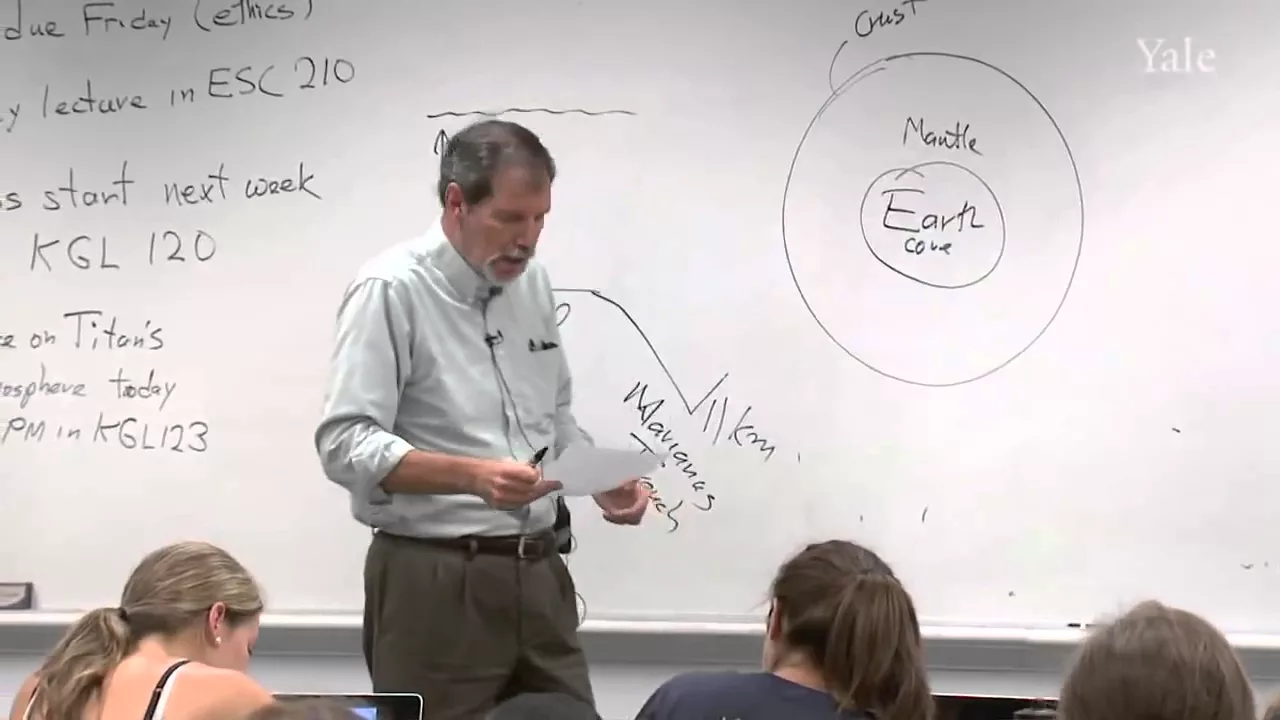 due Friday (ethics)
y lecture in ESC 210
ss start next week
KGL 120
e on Titan's
osphere today
PM in KGL123
Crust
Yale
Mantle
Earth
core
11 km
Marianas